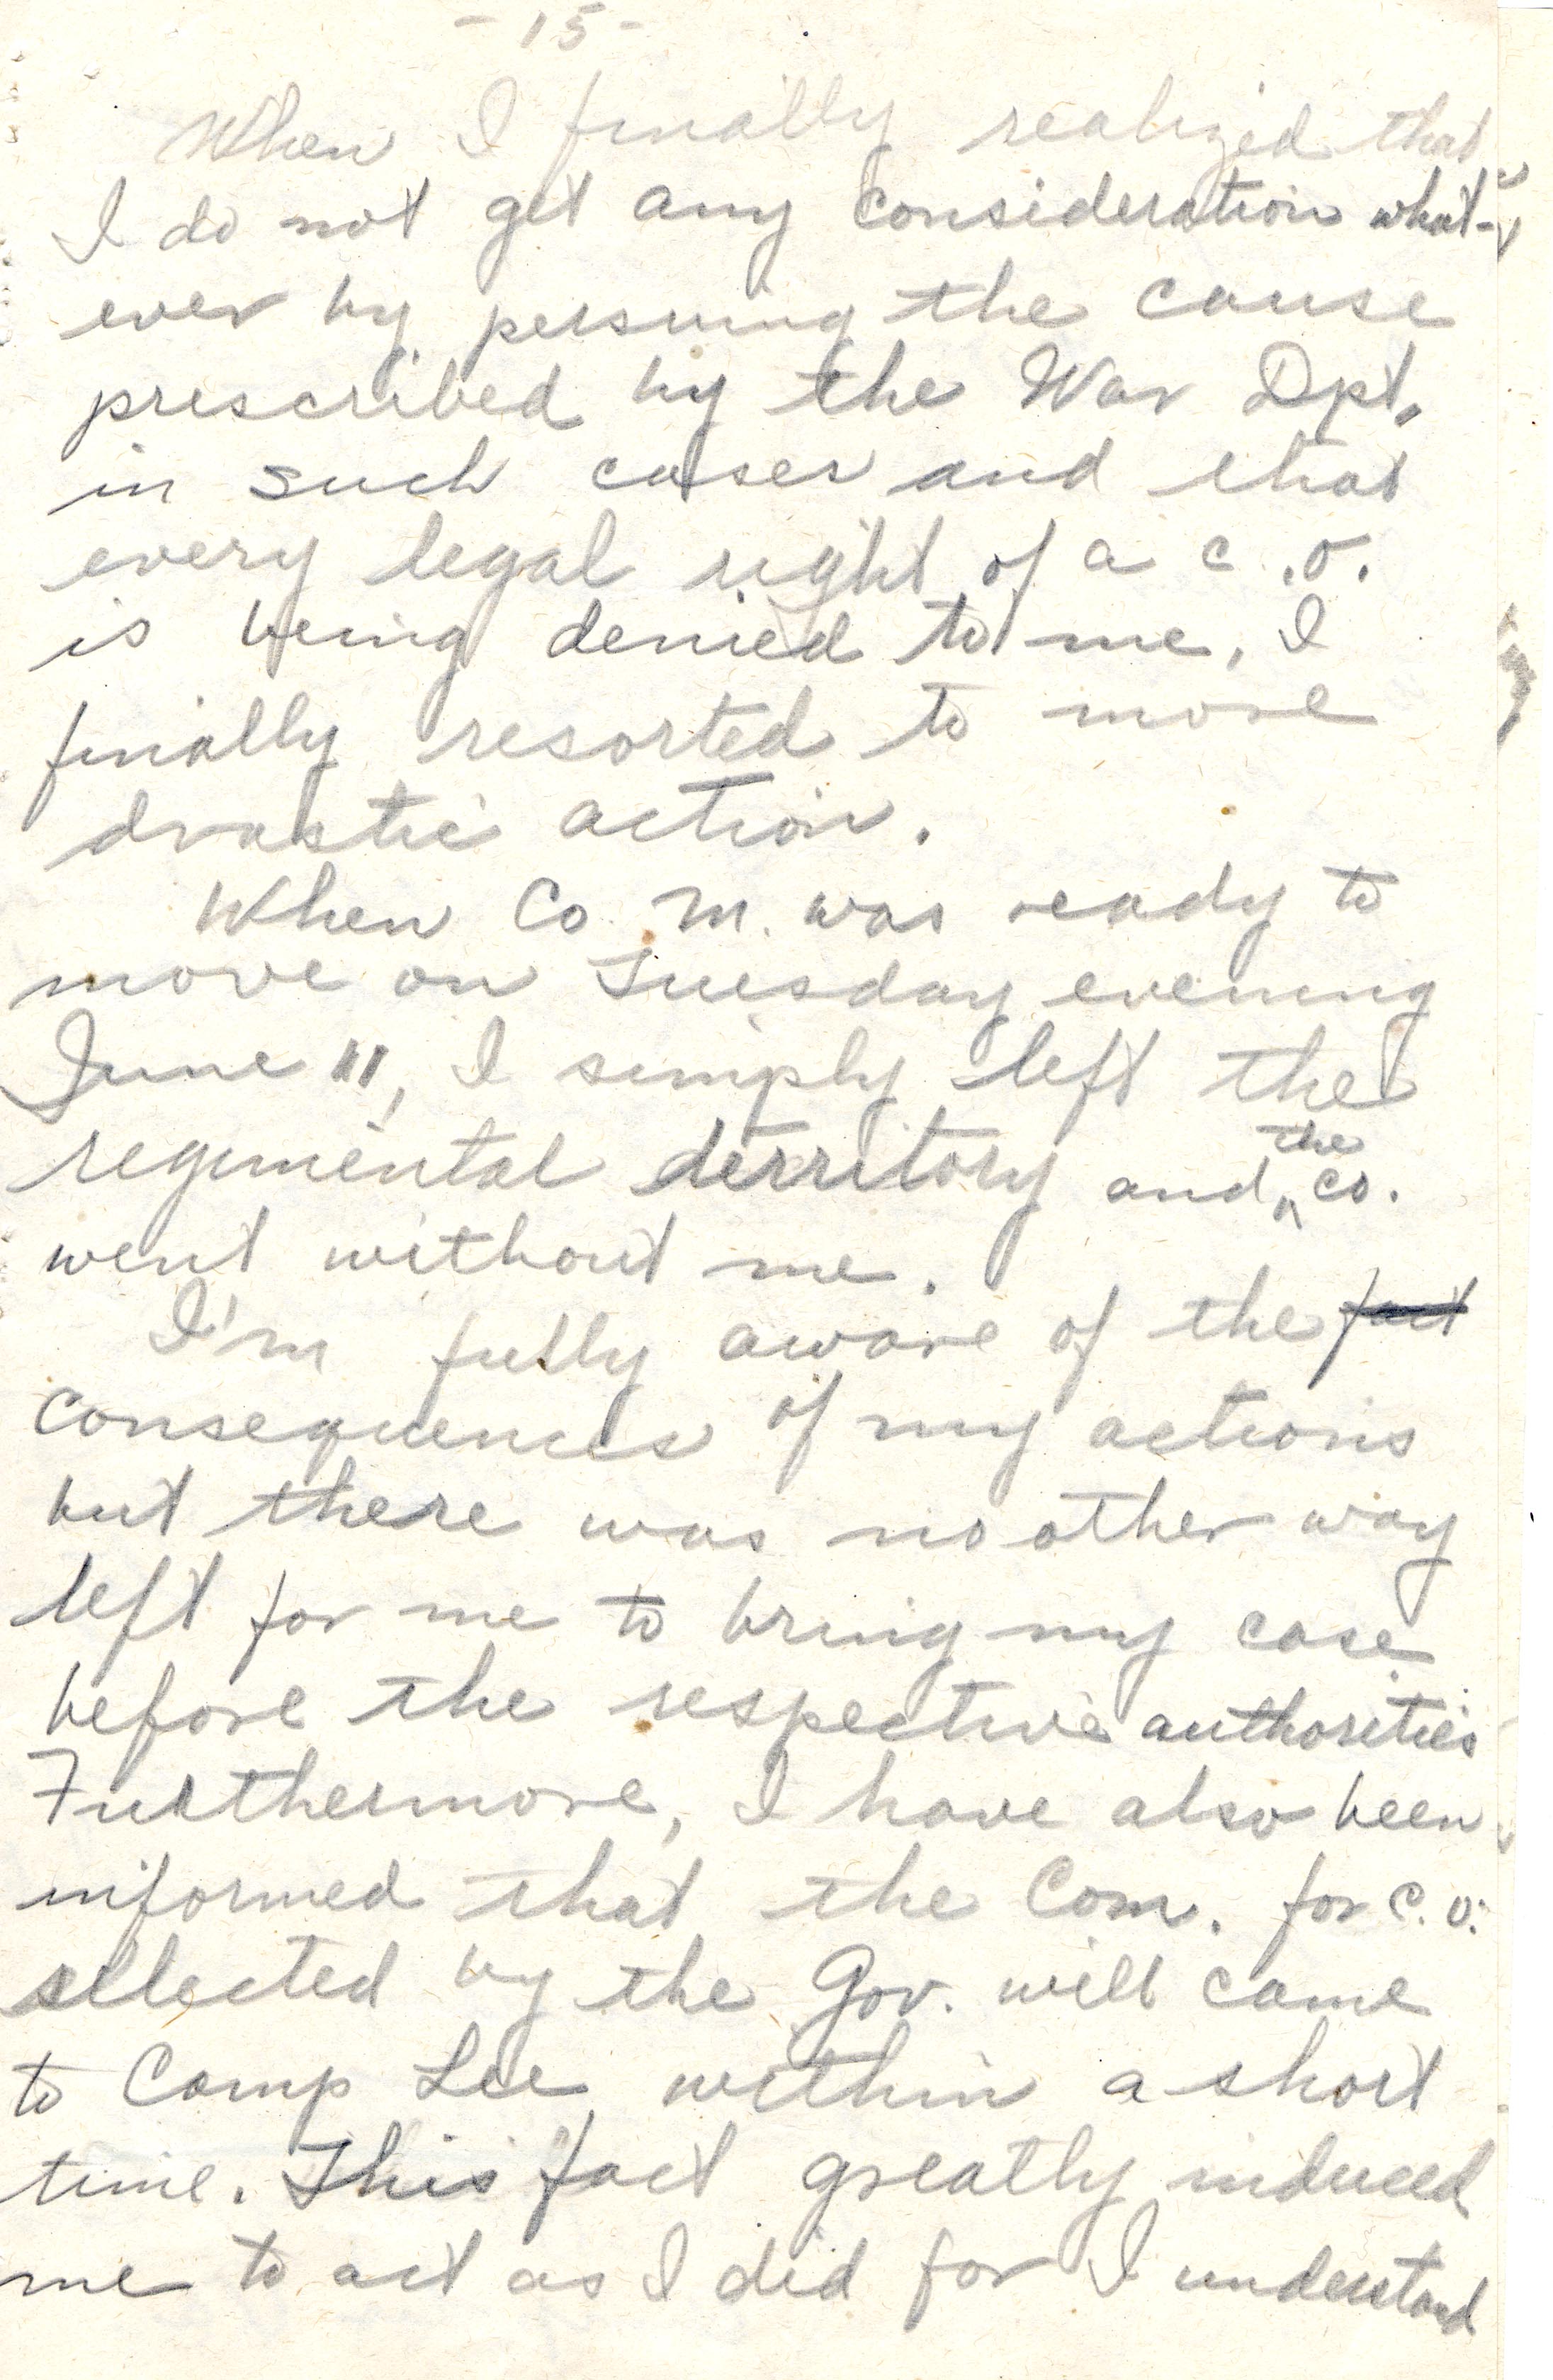 - 15 -
When I finally realized that
I do not get any consideration what-
ever by persuing the cause
prescribed by the War Dpt.
in such cases and that
every legal right of a c.o.
is being denied to me, I
finally resorted to more
drastic action.
When Co. M. was ready to
move on Tuesday evening
June 11, I simply left the
regimental derritory and the co.
went without me.
I'm fully aware of the fact
consequences of my actions
but there was no other way
left for me to bring my case
before the respective authorities
Furthermore, I have also been
informed that the Com. for c.o.
sellected by the Gov. will came
to Camp Lee within a short
time. This fact greatly induced
me to act as I did for I understand